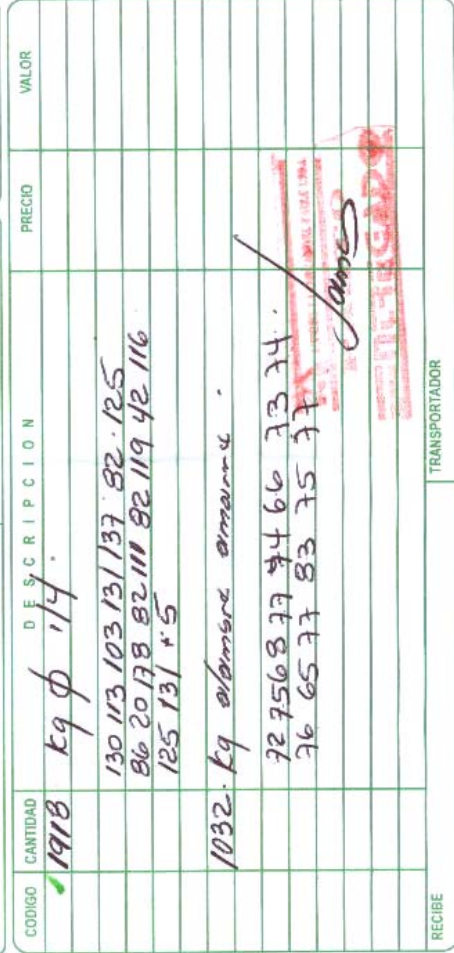 CODIGO CANTIDAD DESCRIPCION PRECIO VALOR
1918 kg ϕ 1/4.
130 113 103 131 137 82 125
86 20 178 82 111 82 119 42 116
125 131 +5
1032. kg alambre amarre.
72 75 68 77 74 66 73 74.
76 65 77 83 75 77
RECIBE TRANSPORTADOR